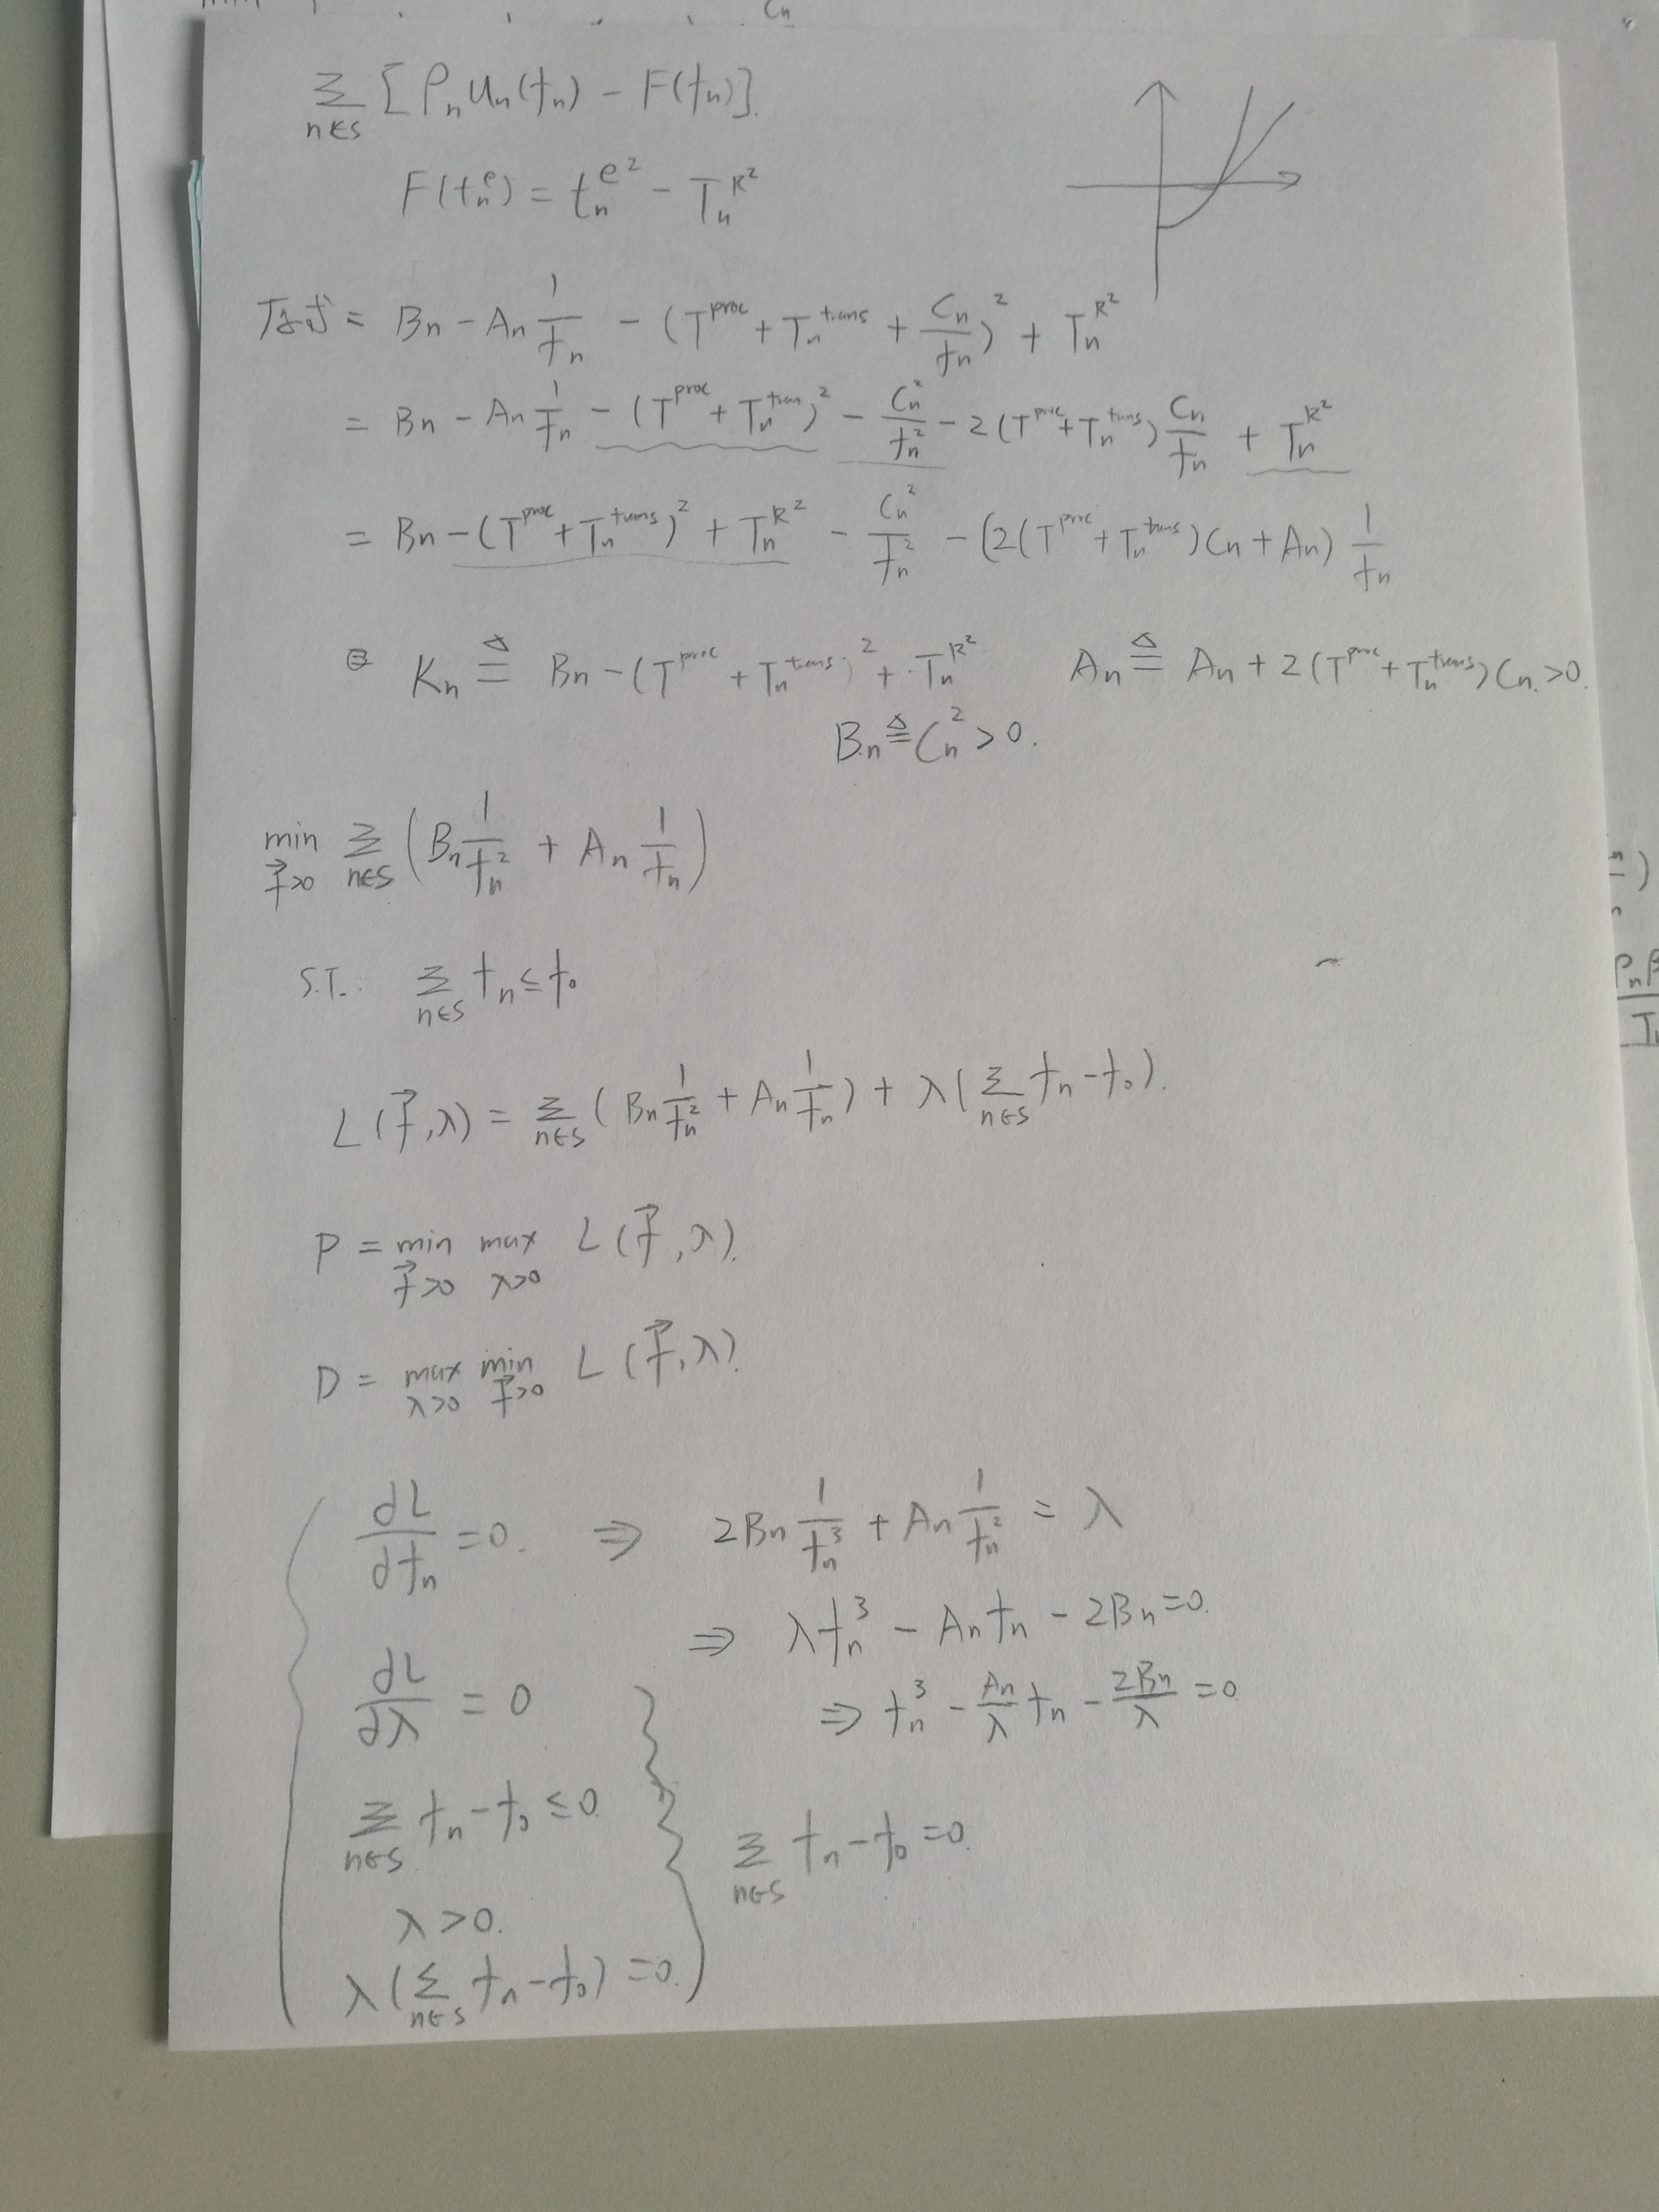 Cn
∑_{n∈S} [ρ_n u_n(f_n) − F(f_n)].
F(t_n^e) = t_n^{e 2} − T_n^{R 2}
= B_n − A_n 1/f_n − (T^{proc} + T_n^{trans} + C_n/f_n)^2 + T_n^{R 2}
= B_n − A_n 1/f_n − (T^{proc} + T_n^{tran})^2 − C_n^2/f_n^2 − 2(T^{proc} + T_n^{trans}) C_n/f_n + T_n^{R 2}
= B_n − (T^{proc} + T_n^{trans})^2 + T_n^{R 2} − C_n^2/f_n^2 − (2(T^{proc} + T_n^{trans})C_n + A_n) 1/f_n
K_n ≜ B_n − (T^{proc} + T_n^{trans})^2 + T_n^{R 2} A_n ≜ A_n + 2(T^{proc} + T_n^{trans})C_n > 0.
B_n ≜ C_n^2 > 0.
min_{f⃗>0} ∑_{n∈S} (B_n 1/f_n^2 + A_n 1/f_n)
S.T. : ∑_{n∈S} f_n ≤ f_0
L(f⃗, λ) = ∑_{n∈S} (B_n 1/f_n^2 + A_n 1/f_n) + λ(∑_{n∈S} f_n − f_0).
P = min_{f⃗>0} max_{λ>0} L(f⃗, λ).
D = max_{λ>0} min_{f⃗>0} L(f⃗, λ).
∂L/∂f_n = 0. ⇒ 2B_n 1/f_n^3 + A_n 1/f_n^2 = λ
⇒ λf_n^3 − A_n f_n − 2B_n = 0.
∂L/∂λ = 0
⇒ f_n^3 − A_n/λ f_n − 2B_n/λ = 0.
∑_{n∈S} f_n − f_0 ≤ 0.
∑_{n∈S} f_n − f_0 = 0.
λ > 0.
λ(∑_{n∈S} f_n − f_0) = 0.